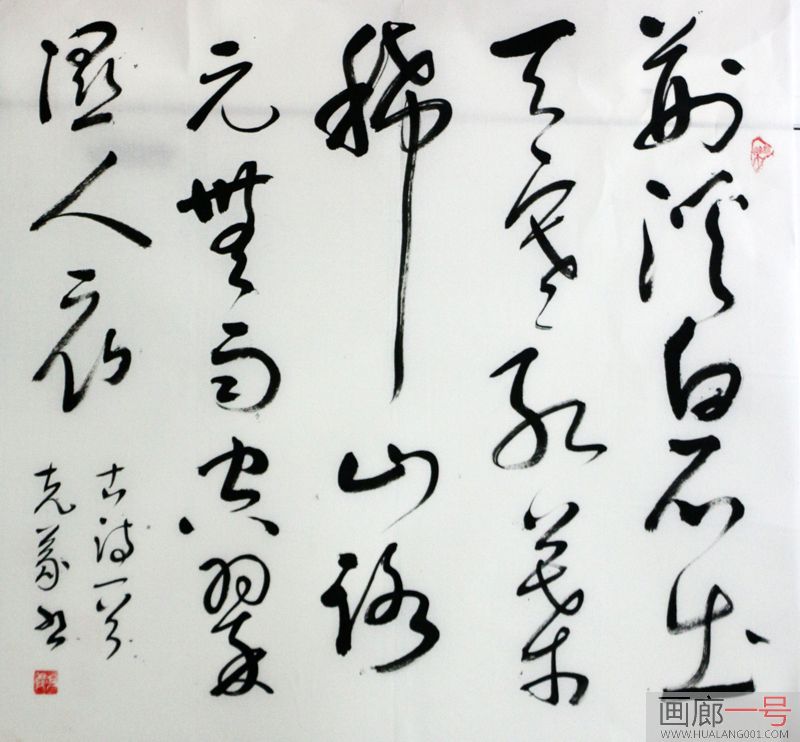 荆溪白石出
天寒红葉
稀山路
元無雨空翠
濕人衣
古诗一首
克義书
画廊一号
WWW.HUALANG001.COM